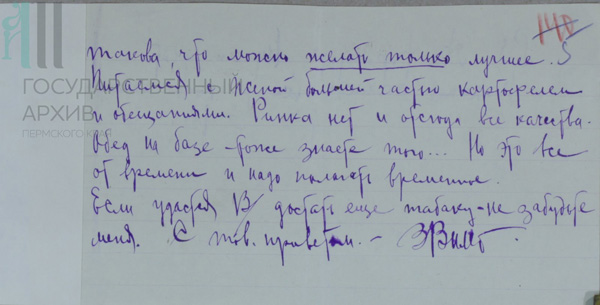 140
5
такова, что можно желать только лучшее.
Питаемся с женой большей частью картофелем
и обещаниями. Рынка нет и отсюда все качества.
Обед на базе тоже знаете того... Но это все
от времени и надо полагать временное.
Если удастся В/ достать еще табаку – не забудьте
меня. С тов. приветом. –
ГОСУДАРСТВЕННЫЙ
АРХИВ
ПЕРМСКОГО КРАЯ